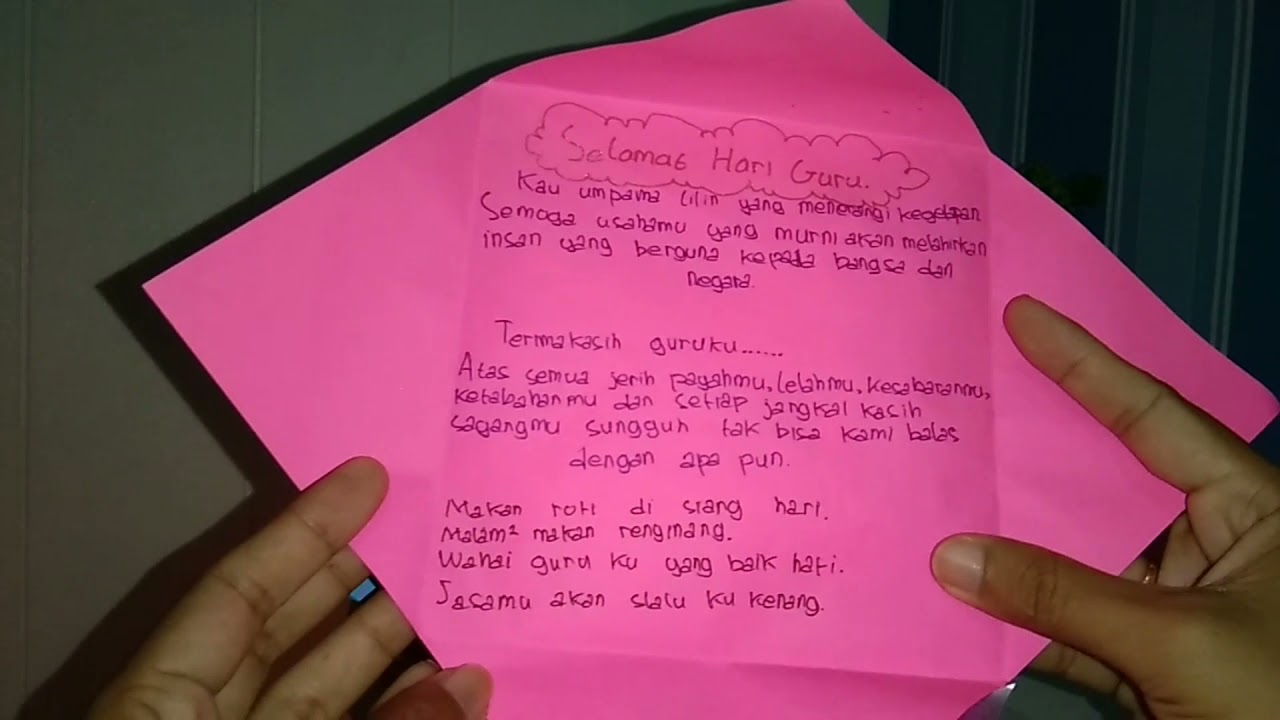 Selamat Hari Guru.
Kau umpama lilin yang menerangi kegelapan
Semoga usahamu yang murni akan melahirkan
insan yang berguna kepada bangsa dan
negara.
Termakasih guruku......
Atas semua jerih payahmu, lelahmu, kesabaranmu,
ketabahanmu dan setiap jangkal kasih
sagangmu sungguh tak bisa kami balas
dengan apa pun.
Makan roti di siang hari.
Malam² makan renginang.
Wahai guru ku yang baik hati.
Jasamu akan slalu ku kenang.